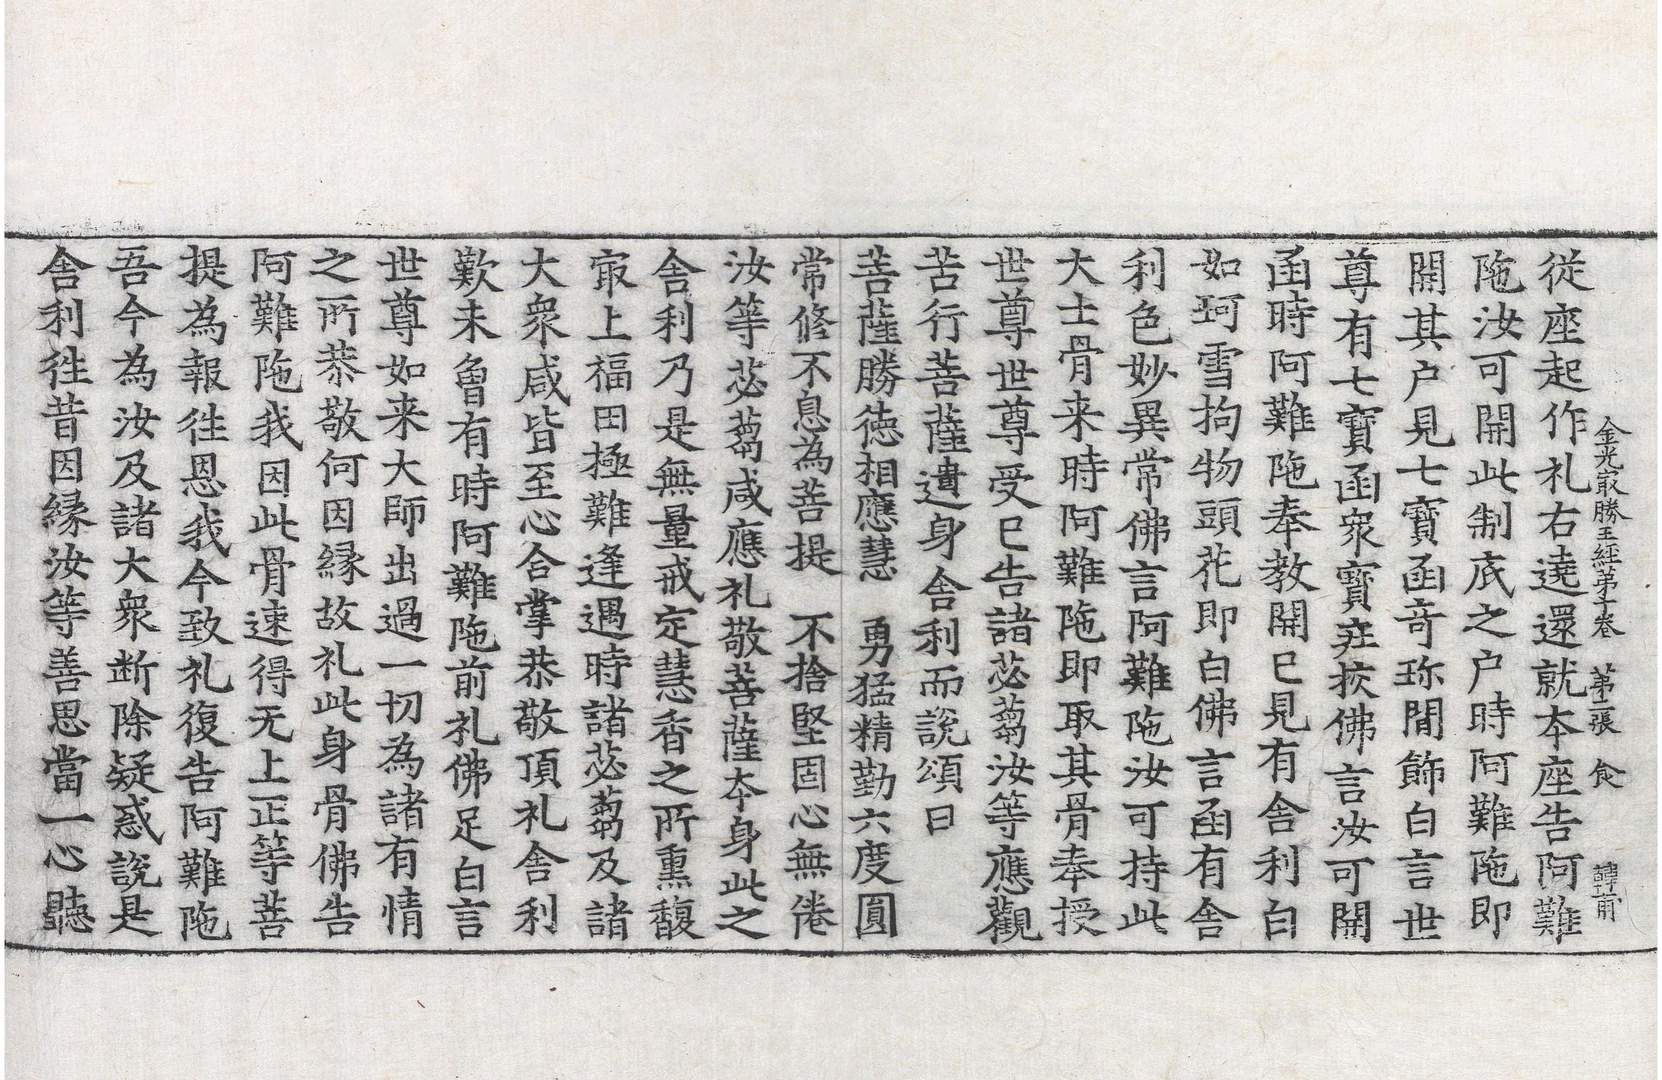 金光㝡勝王經苐十卷 苐二張 食
從座起作礼右遶還就夲座告阿難
陁汝可開此制底之户時阿難陁即
開其户見七寶函奇珎閒飾白言世
尊有七寶函衆寶莊挍佛言汝可開
函時阿難陁奉教開已見有舍利白
如珂雪拘物頭花即白佛言函有舍
利色妙異常佛言阿難陁汝可持此
大士骨来時阿難陁即取其骨奉授
世尊世尊受已告諸苾蒭汝等應觀
苦行菩薩遺身舍利而說頌曰
菩薩勝徳相應慧 勇猛精勤六度圓
常修不息為菩提 不捨堅固心無倦
汝等苾蒭咸應礼敬菩薩夲身此之
舍利乃是無量戒定慧香之所熏馥
㝡上福田極難逢遇時諸苾蒭及諸
大衆咸皆至心合掌恭敬頂礼舍利
歎未曾有時阿難陁前礼佛足白言
世尊如来大師出過一切為諸有情
之所恭敬何因縁故礼此身骨佛告
阿難陁我因此骨速得无上正等菩
提為報往恩我今致礼復告阿難陁
吾今為汝及諸大衆断除疑惑說是
舍利往昔因縁汝等善思當一心聽